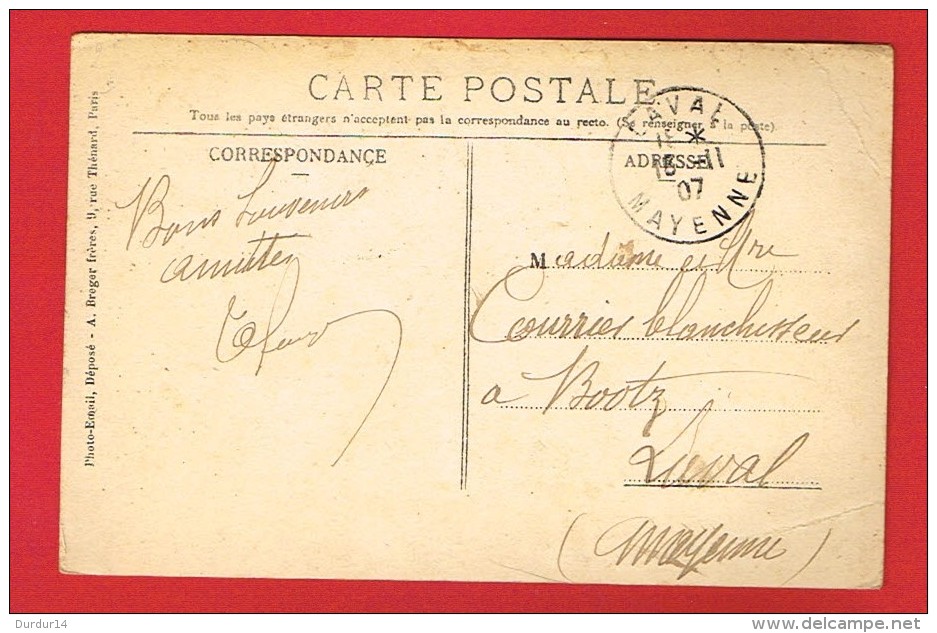 CARTE POSTALE
Tous les pays étrangers n'acceptent pas la correspondance au recto. (Se renseigner à la poste)
CORRESPONDANCE
ADRESSE
LAVAL
15 *
16 -11
07
MAYENNE
Bons Souvenirs
amities
Madame et Mre
Courrier blanchisseur
a Bootz
Laval
(Mayenne)
Photo-Email, Déposé - A. Breger frères, 9, rue Thénard, Paris
Durdur14
delcampe.net